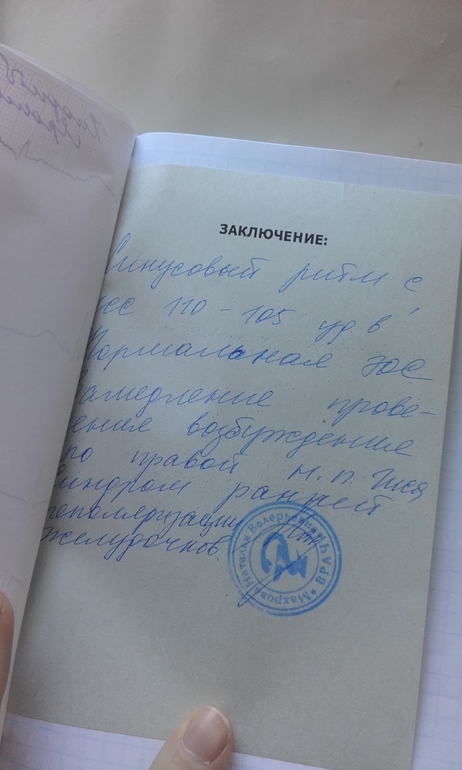 ЗАКЛЮЧЕНИЕ:
Синусовый ритм с
чсс 110 - 105 уд в '
Нормальная ЭОС
Замедление прове-
дения возбуждения
по правой н.п. Гиса
Синдром ранней
реполяризации
желудочков.
Махрова Наталья Валерьевна ВРАЧ